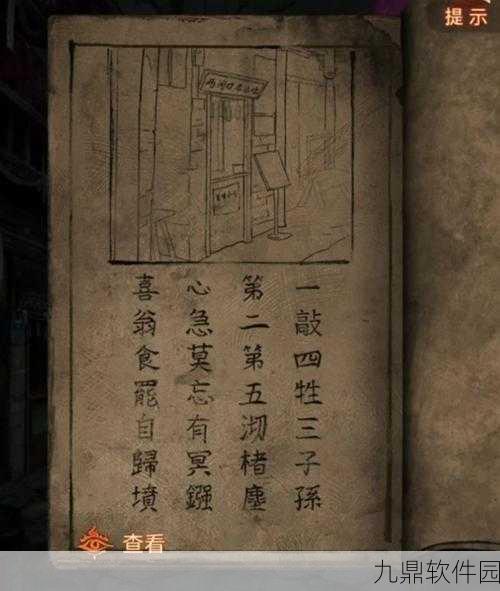 提示
一敲四牲三子孫
第二第五沏楮塵
心急莫忘有冥鏹
喜翁食罷自歸墳
查看
九鼎软件园